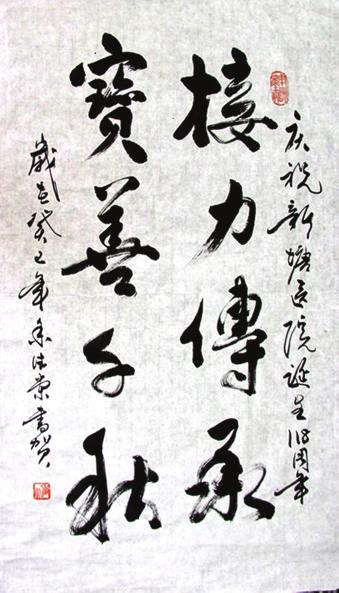 庆祝新塘医院诞生118周年
接力傳承
寶善千秋
歲在癸巳年書贺